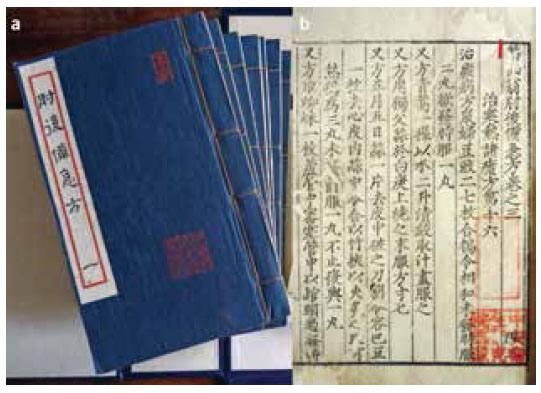 a
肘後備急方
一
b
葛仙翁肘後備急方卷之三
治寒熱諸瘧方第十六
治瘧病方鼠婦豆豉二七枚合搗令相和未發時服
二丸欲發時服一丸
又方青蒿一握以水二升漬絞取汁盡服之
又方用獨父蒜於白炭上燒之末服方寸匕
又方五月五日蒜一片去皮中破之刀割令容巴豆
一枚去心皮內蒜中令合以竹挾以火炙之
熱搗為三丸未發前服一丸不止復與一丸
又方取蜘蛛一枚蘆管中密塞管中以綰頸過發時